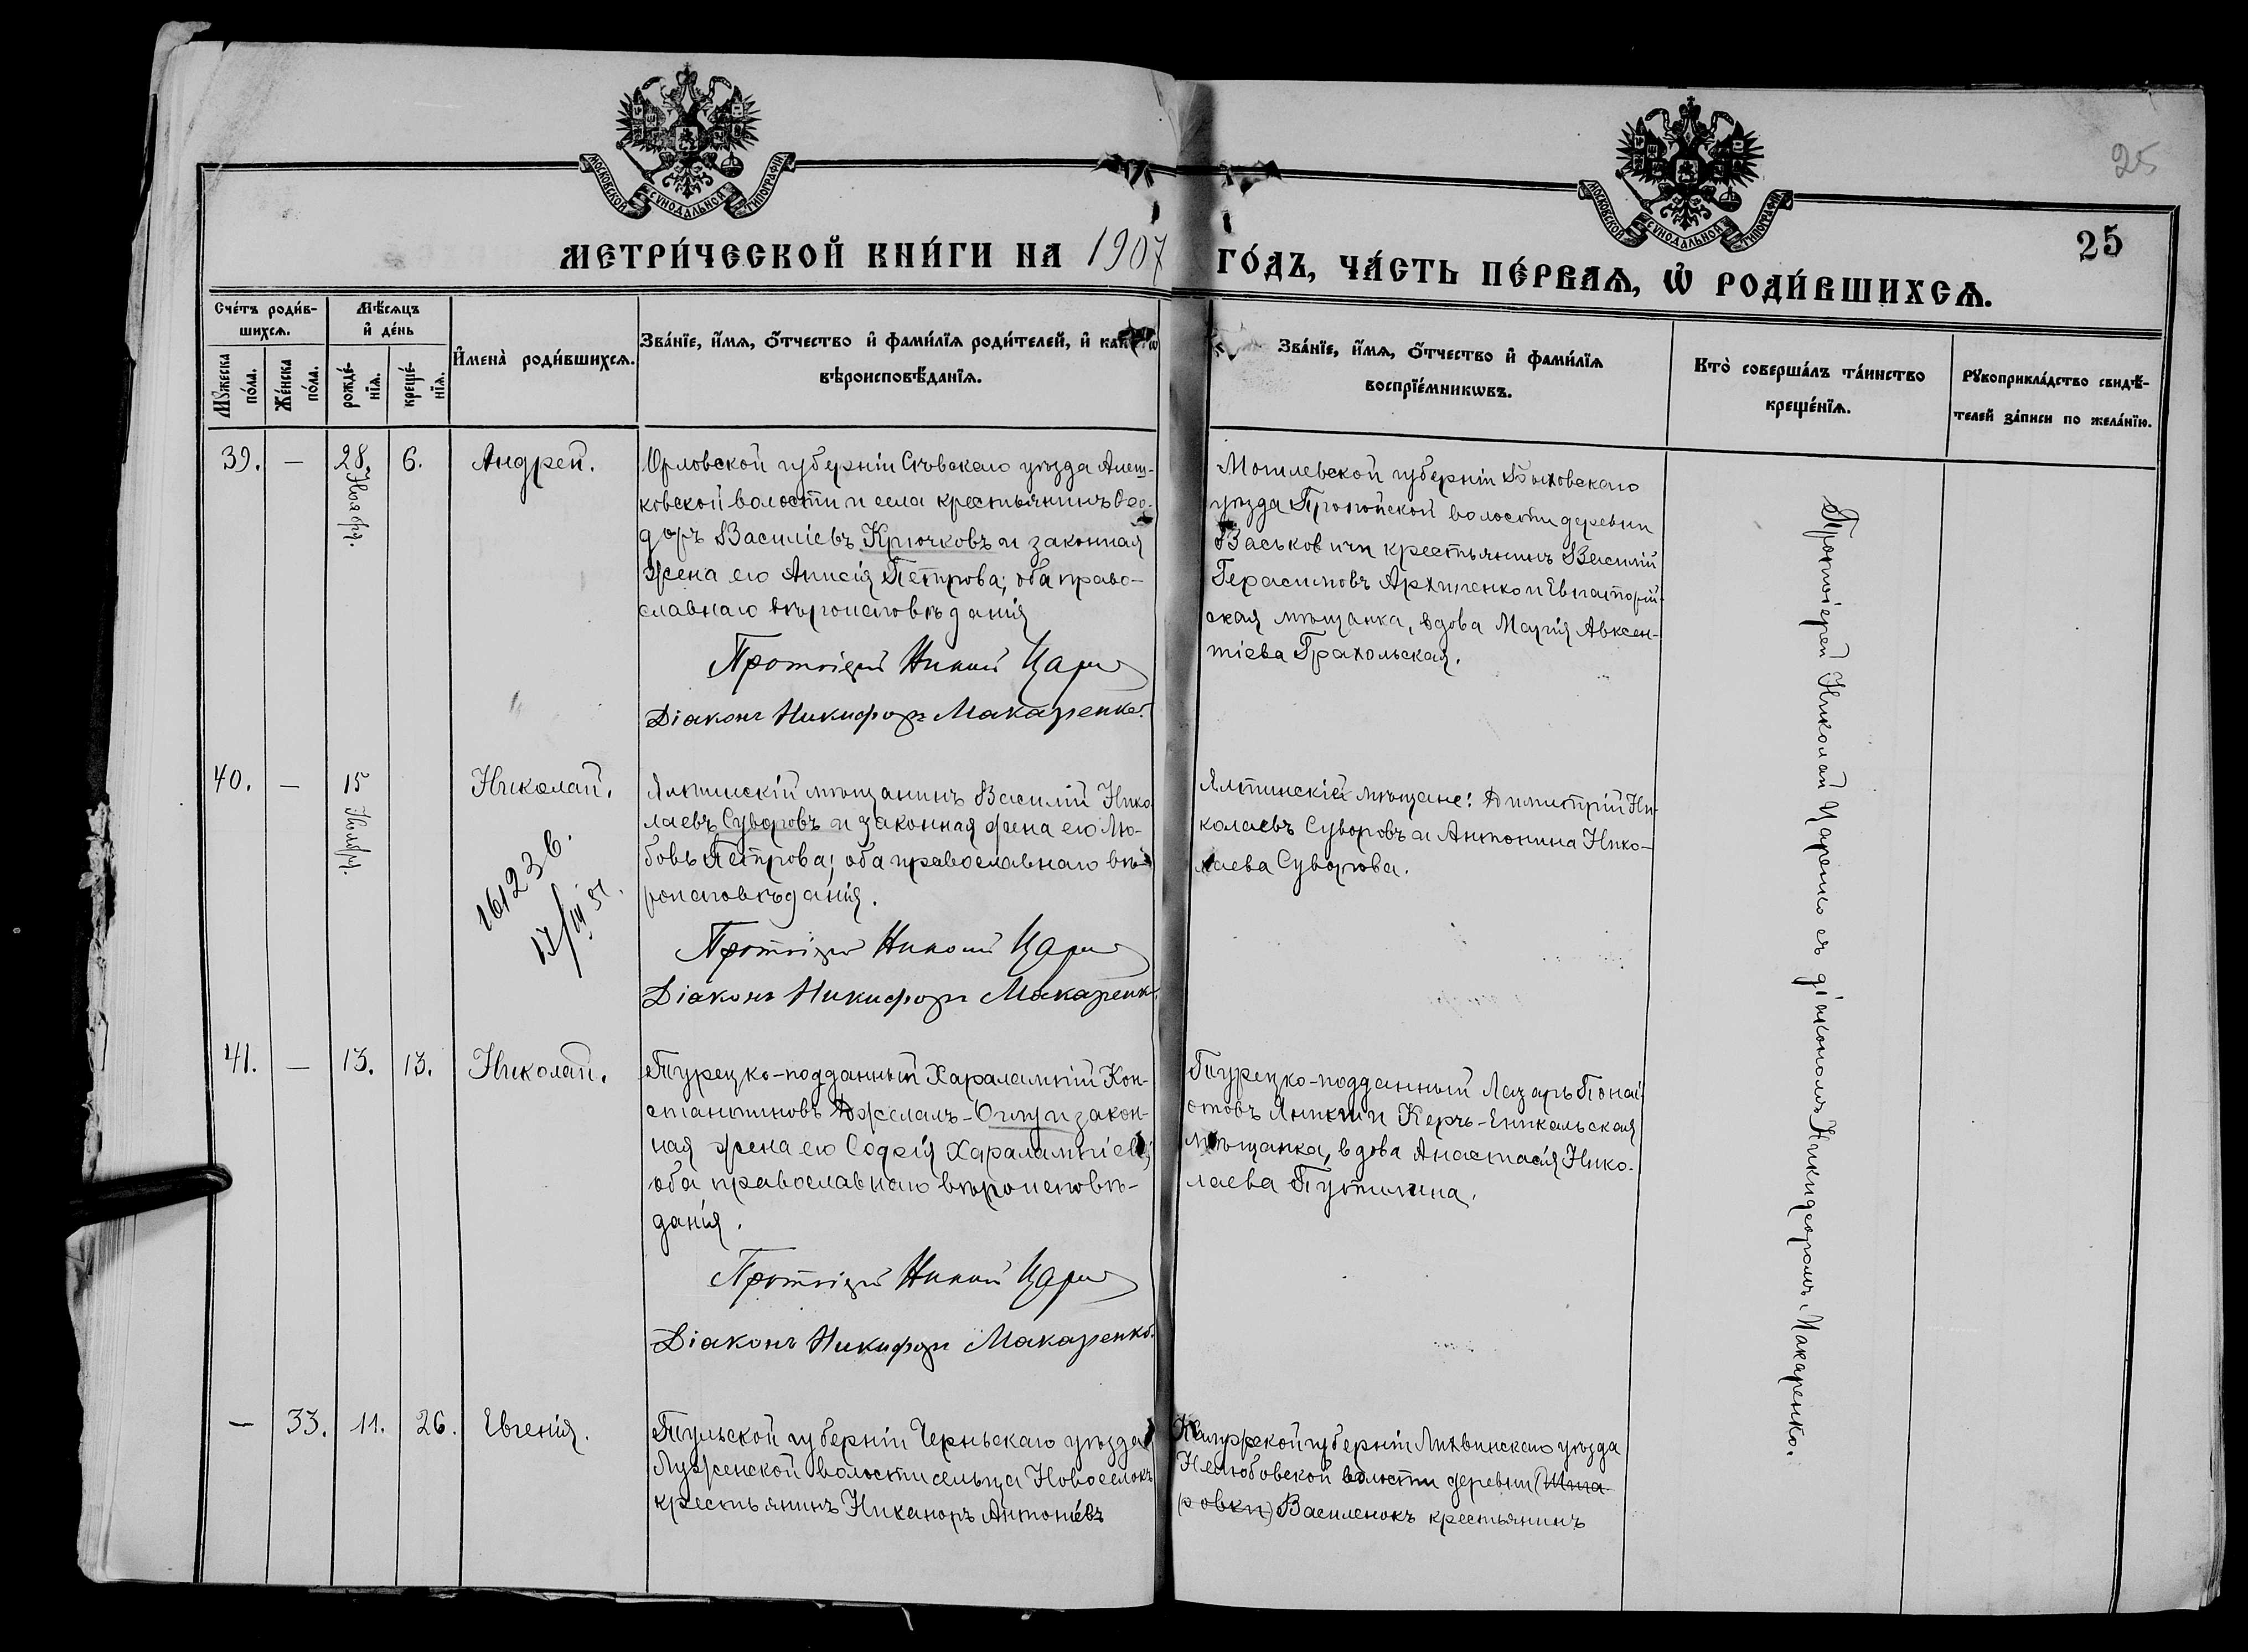 МОСКОВСКОЙ СУНОДАЛЬНОЙ ТИПОГРАФІИ
МОСКОВСКОЙ СУНОДАЛЬНОЙ ТИПОГРАФІИ
25
25
МЕТРИ́ЧЕСКОЙ КНИ́ГИ НА 1907 ГО́ДЪ, ЧА́СТЬ ПЕ́РВАѦ, Ѡ҆ РОДИ́ВШИХСѦ.
Сче́тъ роди́в-
шихсѧ.
Мѣ́сѧцъ
и҆ де́нь
Мꙋ́жеска
по́ла.
Же́нска
по́ла.
рожде́-
нїѧ.
креще́-
нїѧ.
И҆мена̀ роди́вшихсѧ.
Зва́нїе, и҆́мѧ, ѻ҆́тчество и҆ фами́лїѧ роди́телей, и҆ как
вѣроисповѣ́данїѧ.
Зва́нїе, и҆́мѧ, ѻ҆́тчество и҆ фами́лїѧ
воспрїе́мникѡвъ.
Кто̀ соверша́лъ та́инство
креще́нїѧ.
Рꙋкоприкла́дство свидѣ́-
телей за́писи по жела́нїю.
39. — 28. Ноября. 6. Андрей.
Орловской губерніи Сѣвскаго уѣзда
ковской волости и села крестьянинъ Ѳео-
доръ Василіевъ Крючковъ и законная
жена его Анисія Петрова; оба право-
славнаго вѣроисповѣданія
Протоіерей Николай Царе
Діаконъ Никифоръ Макаренко.
Могилевской губерніи Быховскаго
уѣзда Пропойской волости деревни
Васьковичи крестьянинъ Василій
Герасимовъ Архипенко и Евпаторій-
ская мѣщанка, вдова Марія Авксен-
тіева Грахольская.
Протоіерей Николай Царенко съ діакономъ Никифоромъ Макаренко.
40. — 15 Ноября. Николай.
16123 б.
17/III 51.
Ялтинскій мѣщанинъ Василій Нико
лаевъ Суворовъ и законная жена его Лю-
бовь Петрова; оба православнаго вѣ-
роисповѣданія.
Протоіерей Николай Царе
Діаконъ Никифоръ Макаренк
Ялтинскіе мѣщане: Димитрій Ни-
колаевъ Суворовъ и Антонина Нико-
лаева Суворова.
41. — 13. 13. Николай.
Турецко-подданный Харалампій Кон-
стантиновъ Джелалъ-Оглу и закон-
ная жена его Софія Харалампіева;
оба православнаго вѣроисповѣ-
данія.
Протоіерей Николай Царе
Діаконъ Никифоръ Макаренко.
Турецко-подданный Лазарь
отовъ и Керчь-Еникальская
мѣщанка, вдова Анастасія Нико-
лаева Путилина.
— 33. 11. 26. Евгенія.
Тульской губерніи Черньскаго уѣзда
Луженской волости сельца Новоселокъ
крестьянинъ Никаноръ Антоніевъ
Калужской губерніи Лихвинскаго уѣзда
Нелюбовской волости деревни
Василенокъ крестьянинъ